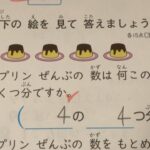 下の 絵を 見て 答えましょう
プリン ぜんぶの 数は 何この
くつ分ですか。
4の 4つ分
プリン ぜんぶの 数を もとめ